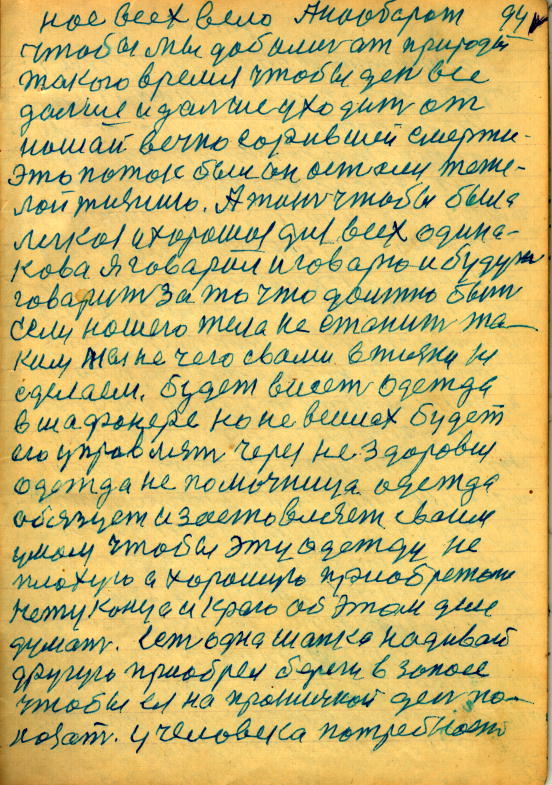 ное всех вело А наоборот 94
чтобы мы добились от природы
такого время чтобы ден все
дальше и дальше уходит от
нашай вечно
это поток были он осталси теже-
лой жизнию. А таки чтобы была
легкоя и хорошоя для всех одина-
кова я говарил и говарю и будум
говарит за то что должно быт
если нашего тела не станит та-
ким мы не чего свами в жизни не
сделаем. будет висет одежда
в шафонере но не вешах будет
его управлят через не здоровия
одежда не помочница одежда
обязует и заставляет своим
умом чтобы эту одежду не
плохую а хорошую приобретат
нету конца и краю об этом деле
думат. Ест одна шапка надивай
другую приобрел береги в запасе
чтобы ея на праничной ден по-
казат. у человека потребност